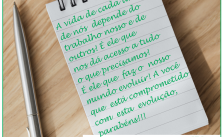 A vida de cada um
de nós depende do
trabalho nosso e de
outros! É ele que
nos da acesso a tudo
o que precisamos!
É ele que faz o nosso
mundo evoluir! A você
que esta comprometido
com esta evolução,
parabéns!!!